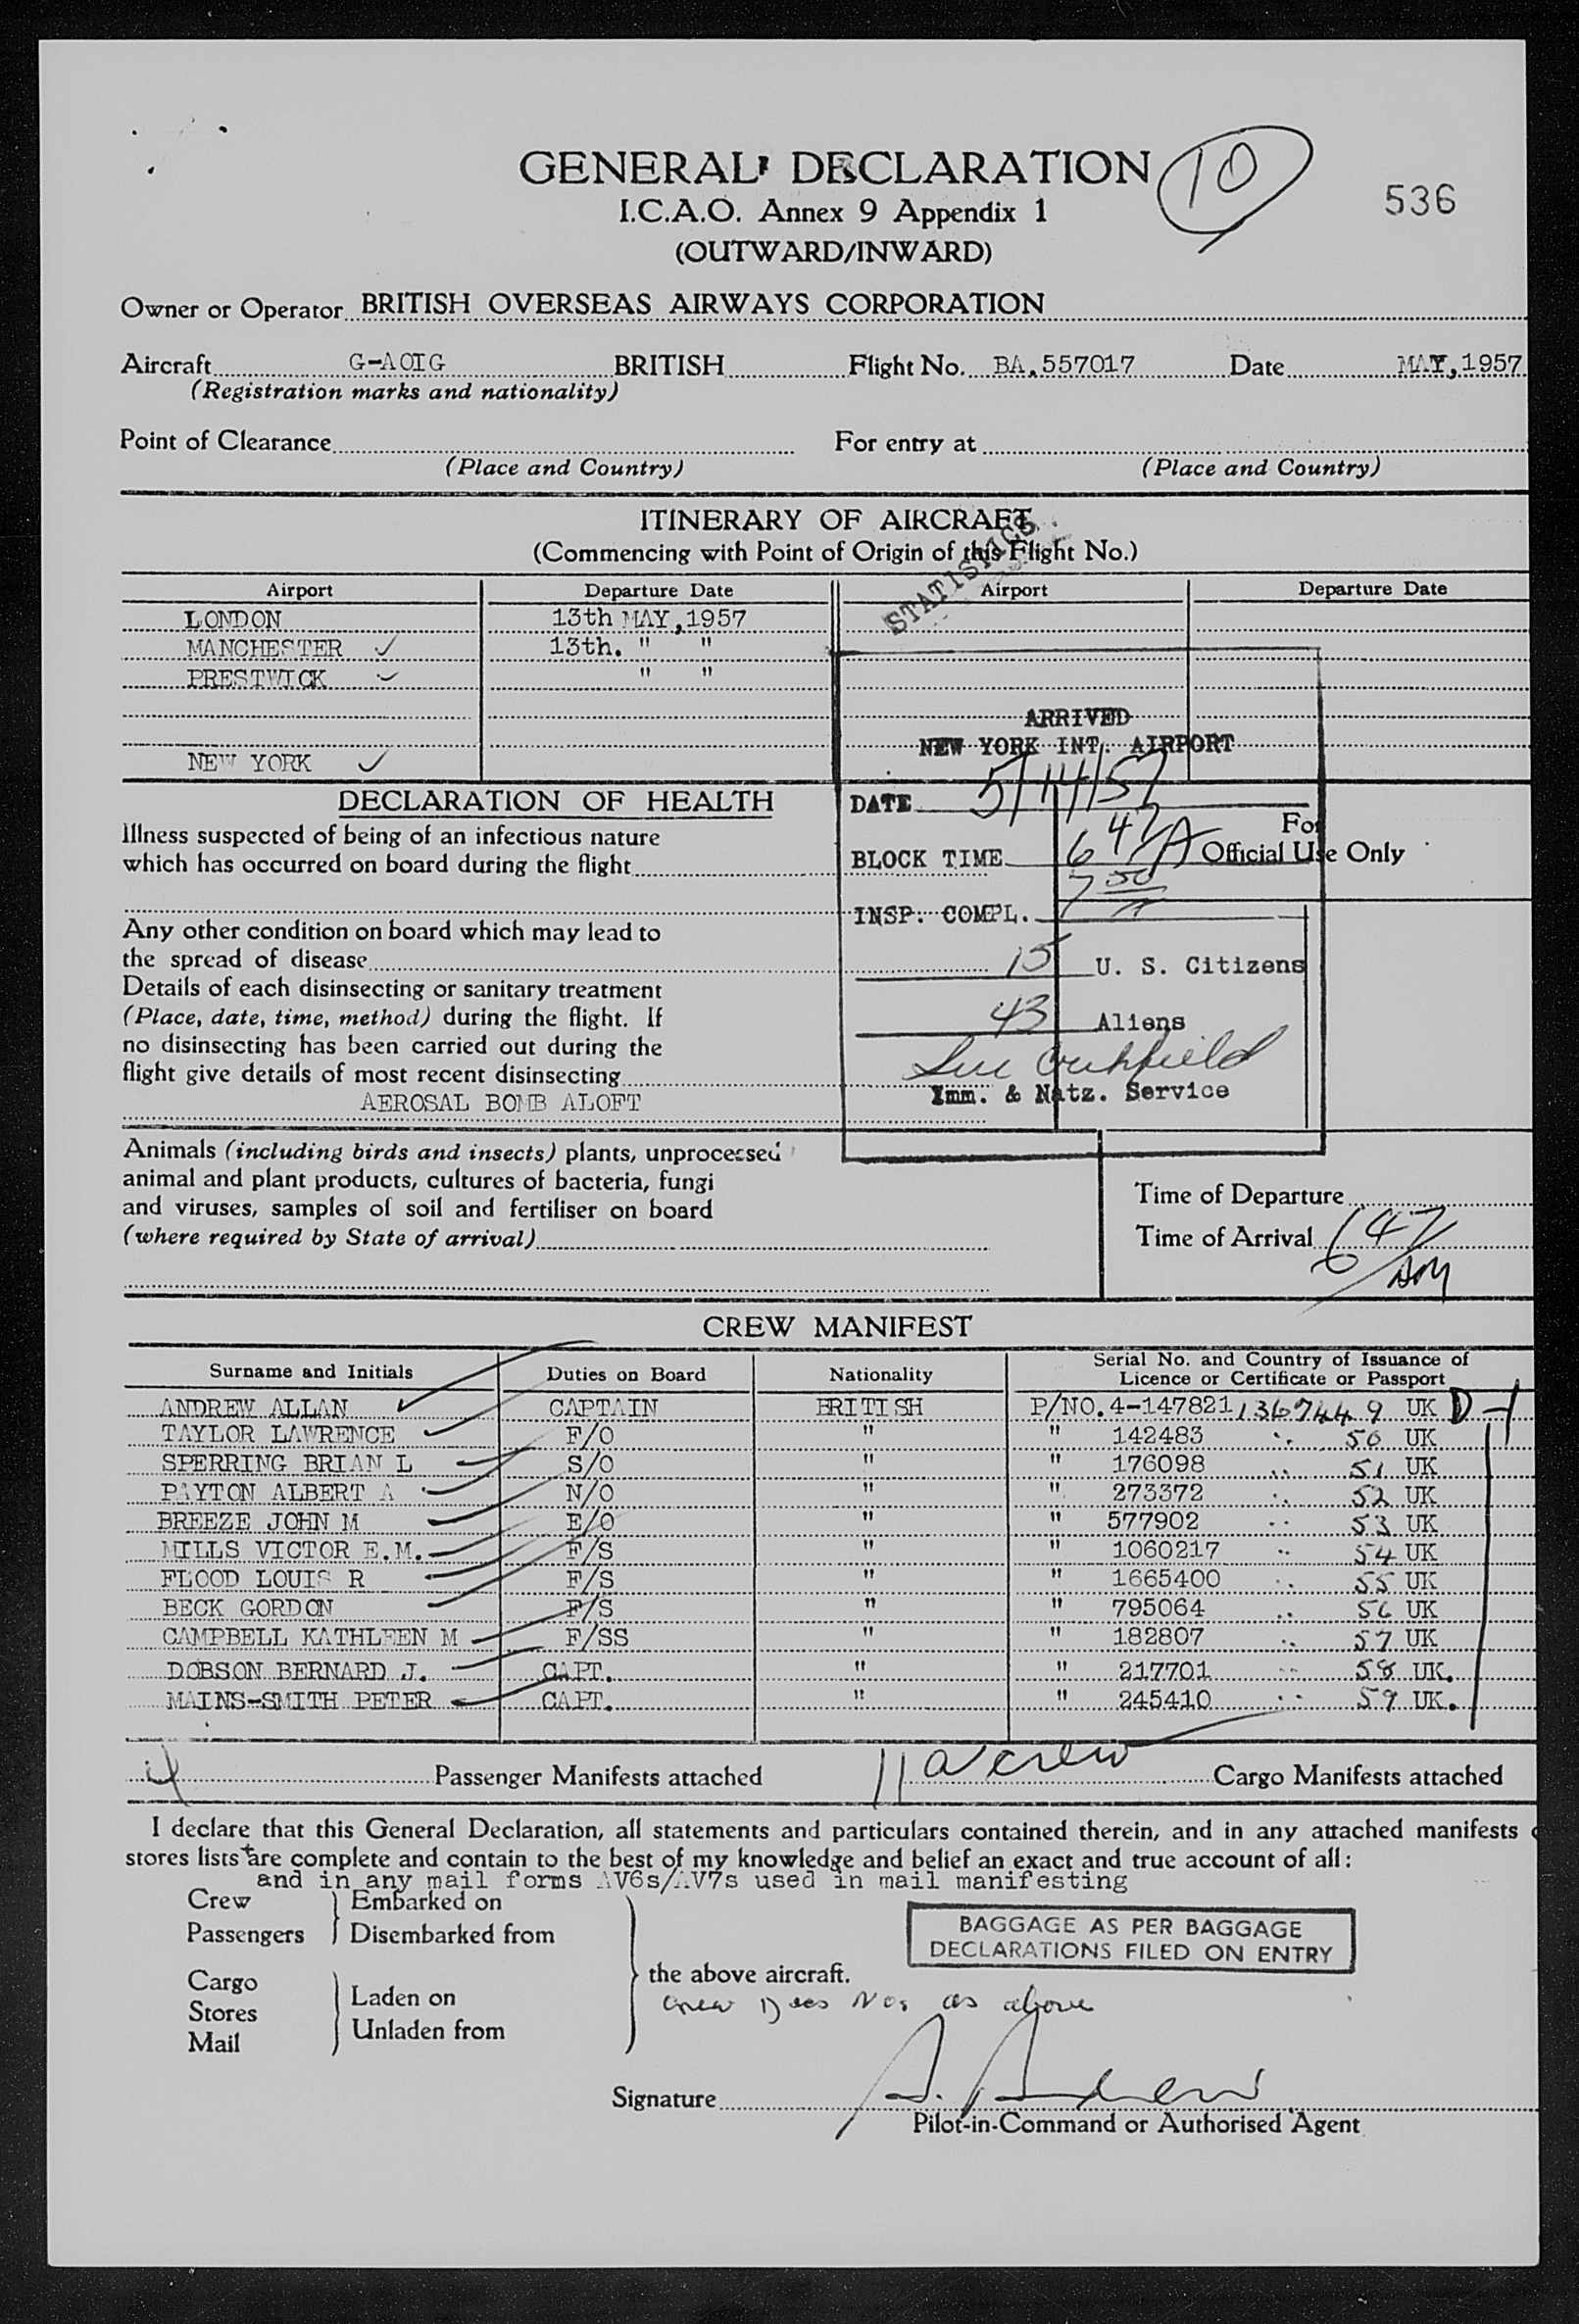 GENERAL DECLARATION
10
536
I.C.A.O. Annex 9 Appendix 1
(OUTWARD/INWARD)
Owner or Operator BRITISH OVERSEAS AIRWAYS CORPORATION
Aircraft G-AOIG BRITISH Flight No. BA.557017 Date MAY,1957
(Registration marks and nationality)
Point of Clearance For entry at
(Place and Country) (Place and Country)
ITINERARY OF AIRCRAFT
(Commencing with Point of Origin of this Flight No.)
STATISTICS
Airport Departure Date Airport Departure Date
LONDON 13th MAY,1957
MANCHESTER ✓ 13th. " "
PRESTWICK ✓ " "
ARRIVED
NEW YORK INT. AIRPORT
NEW YORK ✓
DECLARATION OF HEALTH
DATE 5/14/57
Illness suspected of being of an infectious nature
which has occurred on board during the flight
BLOCK TIME 647A
For
Official Use Only
INSP. COMPL. 750
Any other condition on board which may lead to
the spread of disease
15 U. S. Citizens
Details of each disinsecting or sanitary treatment
(Place, date, time, method) during the flight. If
no disinsecting has been carried out during the
flight give details of most recent disinsecting
43 Aliens
Imm. & Natz. Service
AEROSAL BOMB ALOFT
Animals (including birds and insects) plants, unprocessed
animal and plant products, cultures of bacteria, fungi
and viruses, samples of soil and fertiliser on board
(where required by State of arrival)
Time of Departure
Time of Arrival 647
CREW MANIFEST
Surname and Initials Duties on Board Nationality Serial No. and Country of Issuance of
Licence or Certificate or Passport
ANDREW ALLAN CAPTAIN BRITISH P/NO.4-147821 1367449 UK D-1
TAYLOR LAWRENCE F/O " " 142483 50 UK
SPERRING BRIAN L S/O " " 176098 51 UK
PAYTON ALBERT A N/O " " 273372 52 UK
BREEZE JOHN M E/O " " 577902 53 UK
MILLS VICTOR E.M. F/S " " 1060217 54 UK
FLOOD LOUIS R F/S " " 1665400 55 UK
BECK GORDON F/S " " 795064 56 UK
CAMPBELL KATHLEEN M F/SS " " 182807 57 UK
DOBSON BERNARD J. CAPT. " " 217701 58 UK.
MAINS-SMITH PETER CAPT. " " 245410 59 UK.
4 Passenger Manifests attached 11 a/crew Cargo Manifests attached
I declare that this General Declaration, all statements and particulars contained therein, and in any attached manifests
stores lists are complete and contain to the best of my knowledge and belief an exact and true account of all:
and in any mail forms AV6s/AV7s used in mail manifesting
Crew Embarked on
Passengers Disembarked from
BAGGAGE AS PER BAGGAGE
DECLARATIONS FILED ON ENTRY
Cargo
Stores
Mail
Laden on
Unladen from
the above aircraft.
Crew Decs Nos as above
Signature A. Andrew
Pilot-in-Command or Authorised Agent